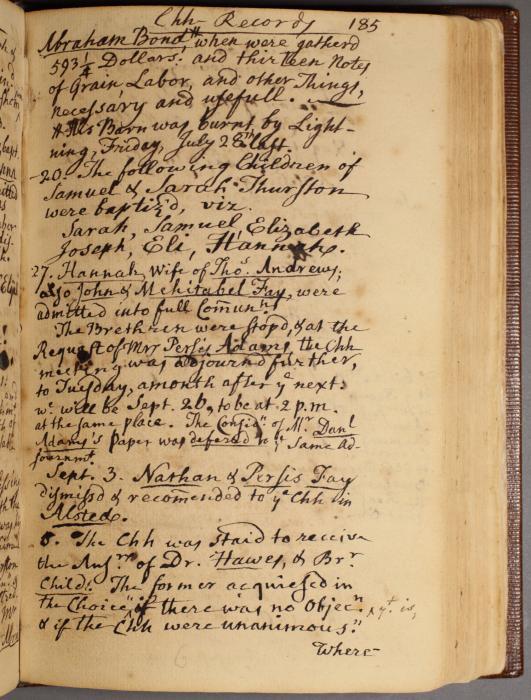 Chh Records 185
Abraham Bond #, when were gatherd
593 1/4 Dollars: and thirteen Notes
of Grain, Labor, and other Things,
necessary and usefull.
# His Barn was burnt by Light-
ning, Friday, July 28th last.
20. The following Children of
Samuel & Sarah Thurston
were baptiz'd, viz.
Sarah, Samuel, Elizabeth
Joseph, Eli, Hannah.
27. Hannah Wife of Thos. Andrews;
also John & Mehitabel Fay, were
admitted into full Comunn.
The Brethren were stop'd, & at the
Request of Mrs Persis Adams, the Chh
meeting was adjournd further,
to Tuesday, a month after ye next:
wc. will be Sept. 26, to be at 2 p.m.
at the same place. The Consid.n of Mr. Danl
Adams's Paper was deferrd to ye Same Ad-
journmt.
Sept. 3. Nathan & Persis Fay
dismissd & recomended to ye Chh in
Alsted.
8. The Chh was staid to receive
the Ansrs of Dr. Hawes, & Br.
Child. The former acquiesed in
the Choice, "if there was no Objecn. x yt. is,
& if the Chh were unanimous."
Where